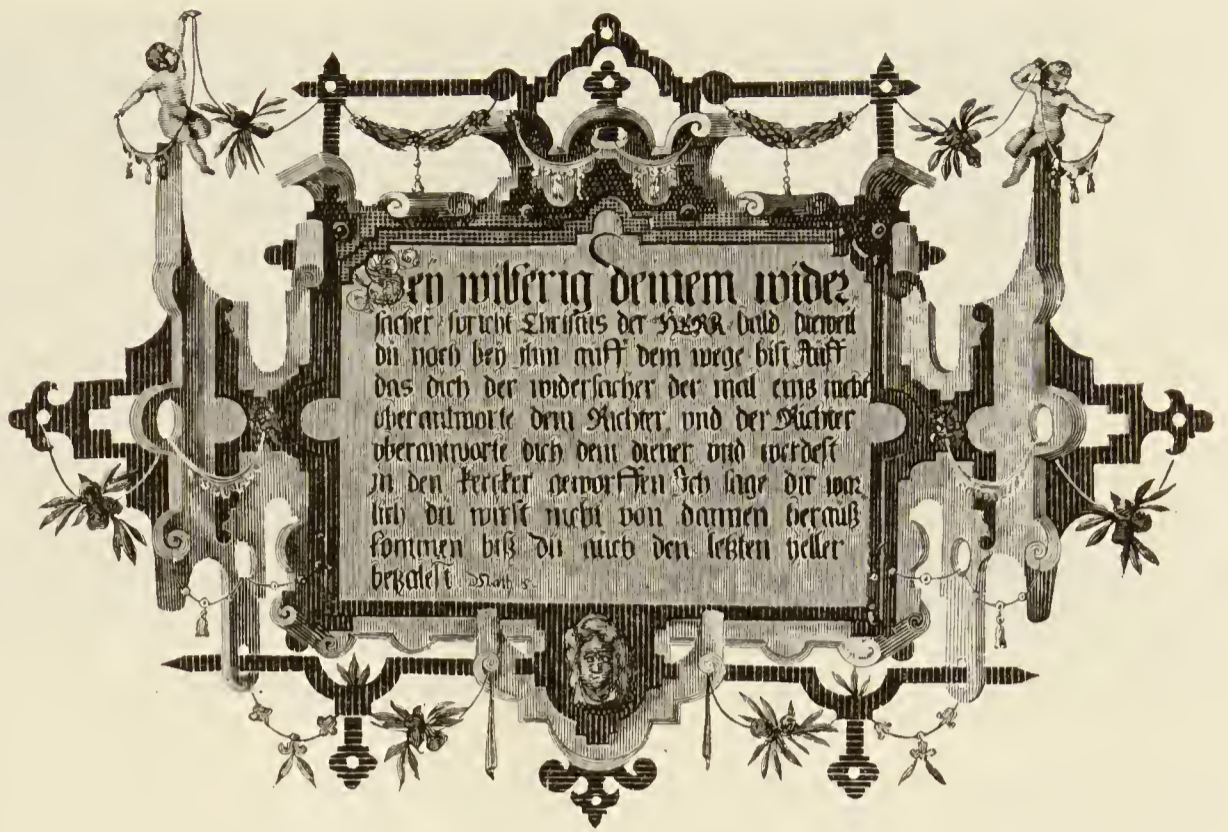 Sey wilferig deinem wider
sacher spricht Christus der HERR bald dieweil
du noch bey ihm auff dem wege bist Auff
das dich der widersacher der mal eins nicht
vberantworte dem Richter vnd der Richter
vberantworte dich dem diener vnd werdest
in den kercker geworffen Ich sage dir war
lich du wirst nicht von dannen herauß
kommen biß du auch den letzten heller
bezalest Math 5